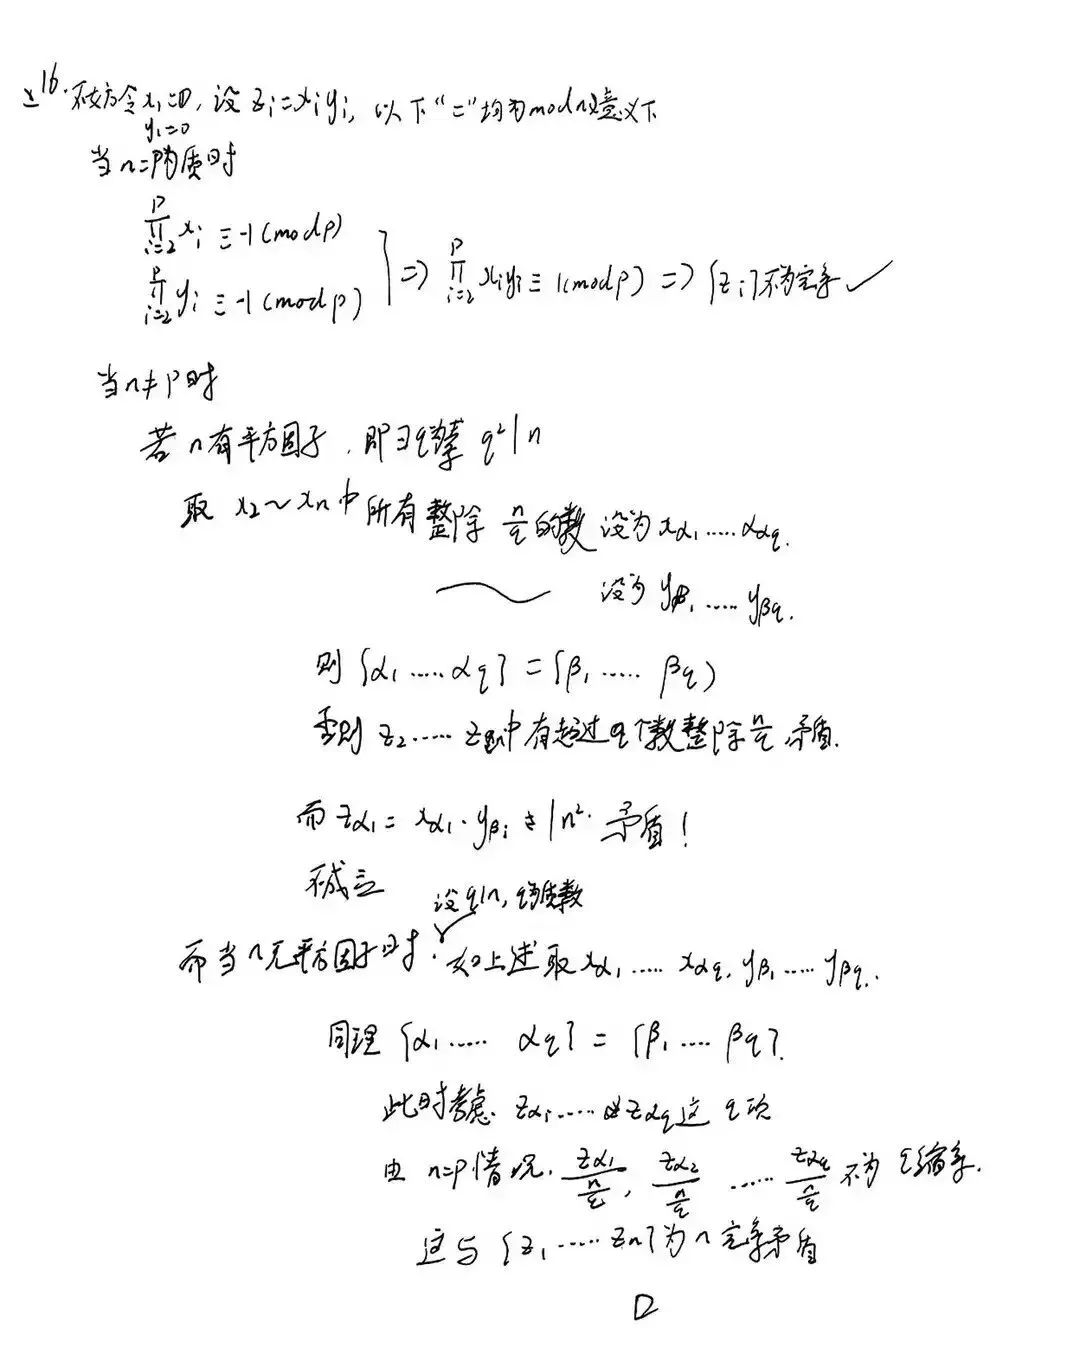 16. 不妨令x₁=0, 设 zᵢ=xᵢyᵢ, 以下“=”均为mod n意义下
y₁=0
当n=p为质时
∏_{i=2}^{p} xᵢ ≡ -1 (mod p)
∏_{i=2}^{p} yᵢ ≡ -1 (mod p)
⇒ ∏_{i=2}^{p} xᵢyᵢ ≡ 1 (mod p) ⇒ {zᵢ}不为完系 ✓
当n≠p时
若n有平方因子, 即∃q为素 q²|n
取 x₂~xₙ中所有整除 n/q 的数 设为 x_{α₁}……α_{αq}.
设为 y_{β₁}……y_{βq}.
则 {α₁……αq} = {β₁……βq}
否则 z₂……zₙ中有超过q个数整除 n/q 矛盾.
而 z_{α₁} = x_{α₁}·y_{βᵢ} |n². 矛盾!
不成立
设q|n, q为质数
而当n无平方因子时. 如上述取 x_{α₁}……x_{αq}, y_{β₁}……y_{βq}.
同理 {α₁……αq} = {β₁……βq}.
此时考虑 z_{α₁}……z_{αq}这q项
由 n=p情况. z_{α₁}/(n/q), z_{α₂}/(n/q) …… z_{αq}/(n/q) 不为 q缩系.
这与 {z₁……zₙ}为n完系矛盾
□